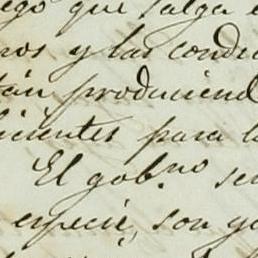 ego que salga e
ros y las condu
tán produciend
icientes para l
El gob.no se
especie, son g